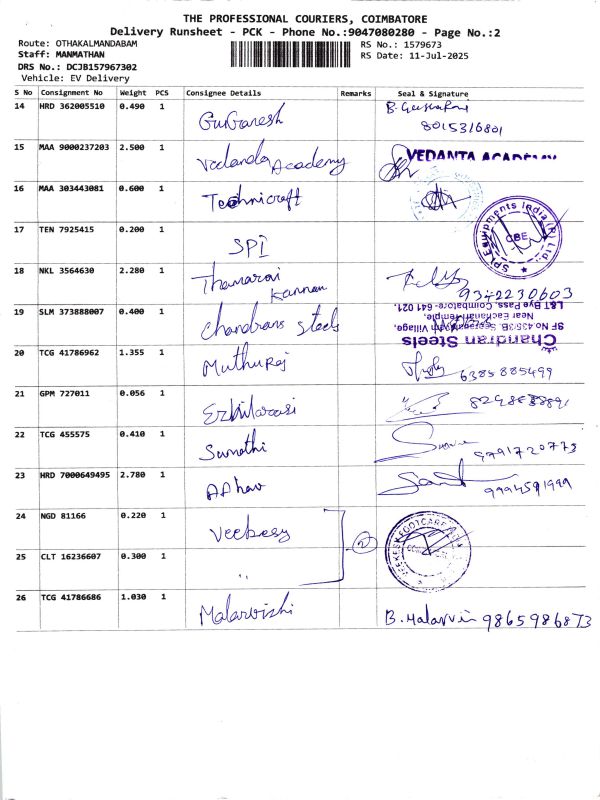 THE PROFESSIONAL COURIERS, COIMBATORE
Delivery Runsheet - PCK - Phone No.:9047080280 - Page No.:2
Route: OTHAKALMANDABAM
Staff: MANMATHAN
DRS No.: DCJB157967302
Vehicle: EV Delivery
RS No.: 1579673
RS Date: 11-Jul-2025
S No Consignment No Weight PCS Consignee Details Remarks Seal & Signature
14 HRD 362005510 0.490 1 GurGanesh
8015316801
15 MAA 9000237203 2.500 1 Vedanda Academy VEDANTA ACADEMY
16 MAA 303443081 0.600 1 Technicraft
17 TEN 7925415 0.200 1 SPI SPI Equipments India (P) Ltd. CBE.
18 NKL 3564630 2.280 1 Thamarai Kannan 9342230603
19 SLM 373888007 0.400 1 Chandrans steels
Chandran Steels
SF No.435/3B, Village,
Near Eachanari Temple,
L&T Bye Pass, Coimbatore- 641 021.
20 TCG 41786962 1.355 1 MuthuRaj 6385885499
21 GPM 727011 0.056 1 Ezhilarasi
22 TCG 455575 0.410 1 Sumathi 9791720773
23 HRD 7000649495 2.780 1 9994591999
24 NGD 81166 0.220 1 Veekesy 2 VEEKESY FOOTCARE
25 CLT 16236607 0.300 1 "
26 TCG 41786686 1.030 1 Malarvizhi B. Malarvizhi 9865986873